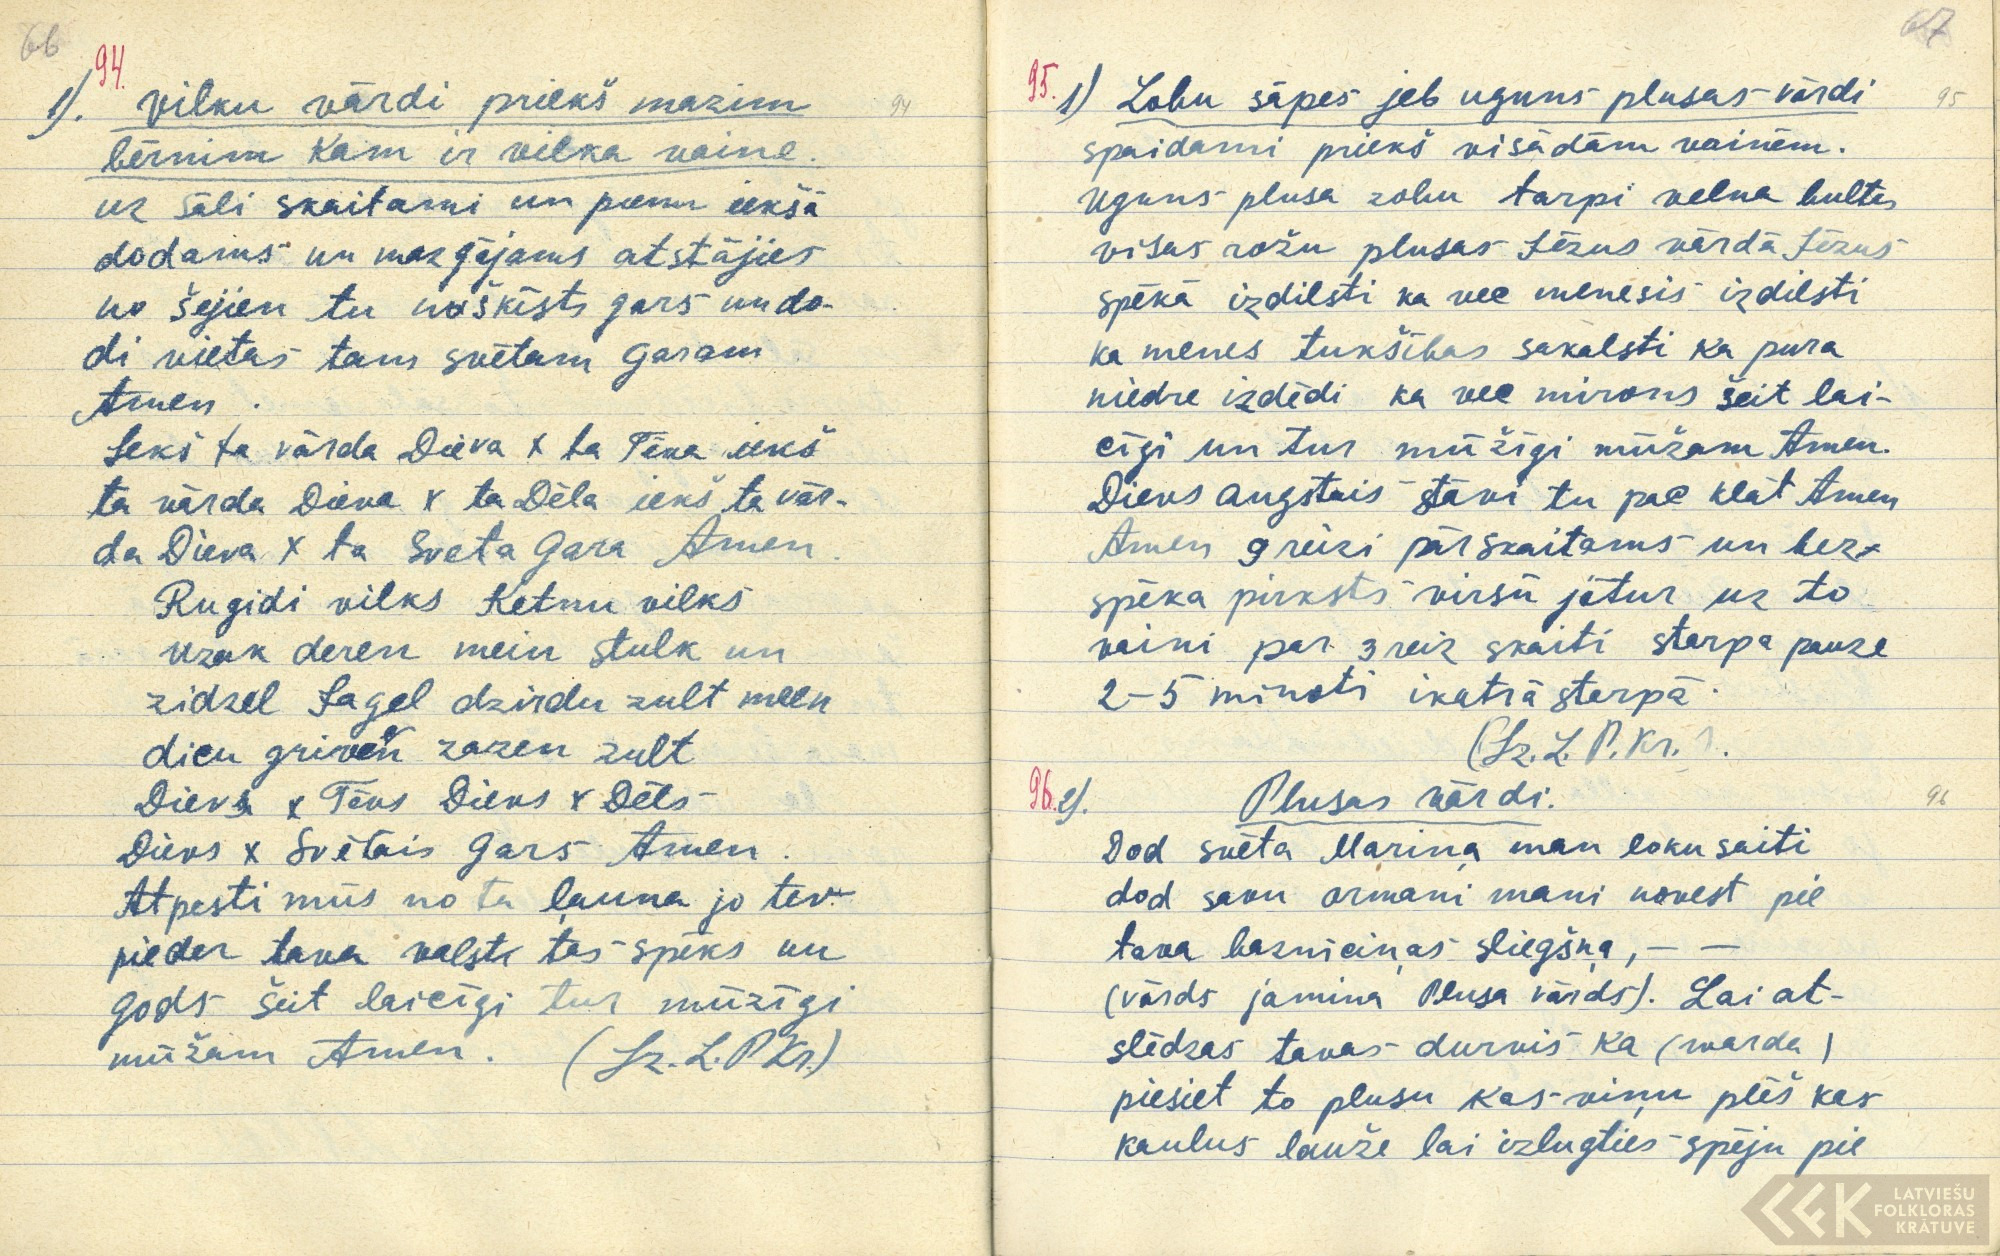 66
94.
1). Vilku vārdi priekš mazim 94
bērnim kam ir vilka vaine.
uz sāli skaitami un pienu iekšā
dodams un mazgājams atstājies
no šejien tu nešķīsts gars un do-
di vietas tam svētam Garam
Amen.
Iekš ta vārda Dieva x ta Tēva iekš
ta vārda Dieva x ta Dēla iekš ta vār-
da Dieva x ta Sveta Gara Amen.
Rugidi vilks Ketnu vilks
uzak deren mein stulk un
zidzel Sagel dzirdu zult meen
dicu griven zazen zult
Dievs x Tēvs Dievs x Dēls
Dievs x Svētais Gars Amen.
Atpesti mūs no ta ļauna jo tev
pieder tava valsts tas spēks un
gods šeit laicīgi tur mūzīgi
mūžam Amen. (Iz. L. P. Kr.)
67
95. 1) Zobu sāpes jeb uguns plusas vārdi 95
spaidami priekš visādām vainēm.
Uguns plusa zobu tarpi velna bultes
visas rožu plusas Jēzus vārdā Jēzus
spēkā izdilsti ka vec menesis izdilsti
ka menes tukšības sakalsti ka pura
niedre izdēdi ka vec mirons šeit lai-
cīgi un tur mūžīgi mūžam Amen.
Dievs augstais stāvi tu pac klāt Amen
Amen 9 reizi pārskaitams un bez
spēka pirksts virsū jātur uz to
vaini par 3 reiz skaiti starpa pauze
2-5 minoti ikatrā starpā.
(Iz. L. P. Kr.).
96. 2). Plusas vārdi. 96
Dod svēta Mariņa man loku saiti
dod savu ormani mani novest pie
tava bazniciņas sliegšņa, — —
(vārds jamina Plusa vārds). Lai at-
slēdzas tavas durvis ka (warda)
piesiet to plusu kas viņu plēš kas
kaulus lauže lai izlugties spēju pie
LATVIEŠU
FOLKLORAS
KRĀTUVE